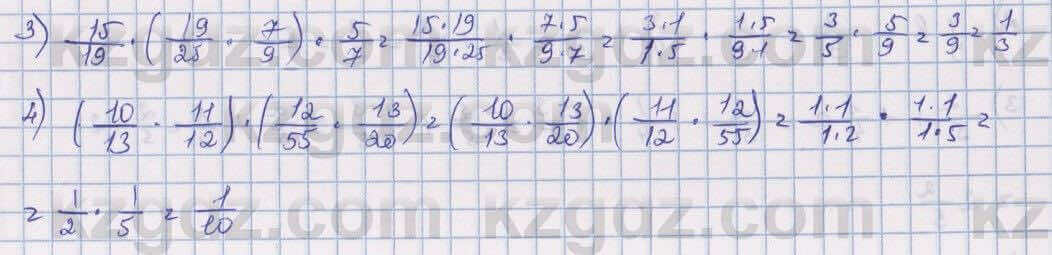 3) 15/19 · (19/25 · 7/9) · 5/7 = 15·19/19·25 · 7·5/9·7 = 3·1/1·5 · 1·5/9·1 = 3/5 · 5/9 = 3/9 = 1/3
4) (10/13 · 11/12) · (12/55 · 13/20) = (10/13 · 13/20) · (11/12 · 12/55) = 1·1/1·2 · 1·1/1·5 =
= 1/2 · 1/5 = 1/10
kzgdz.com